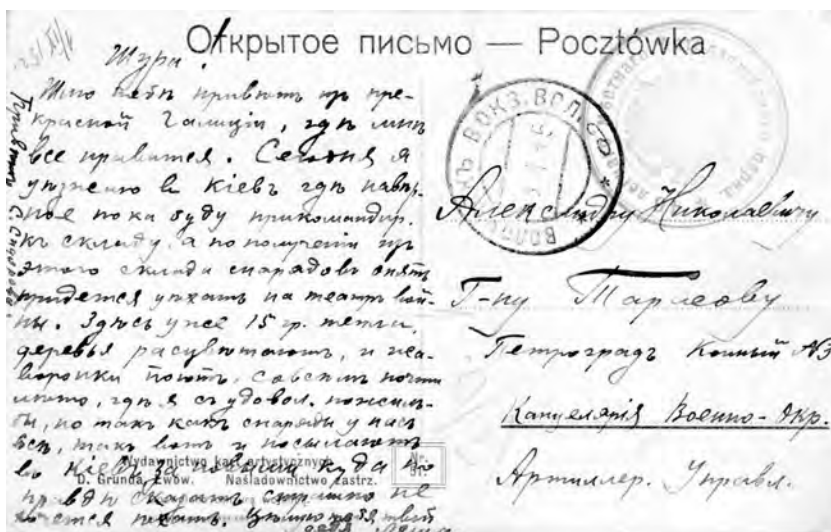 Открытое письмо — Pocztówka
Шура!
Шлю тебѣ привѣтъ изъ пре-
красной Галиціи, гдѣ мнѣ
все нравится. Сегодня я
уѣзжаю въ Кіевъ гдѣ навѣр-
ное пока буду прикомандир.
къ складу, а по полученіи изъ
этого склада снарядовъ опять
придется уѣхать на театръ вой-
ны. Здѣсь уже 15 гр. тепла,
деревья расцвѣтаютъ, и жа-
воронки поютъ, совсѣмъ почти
лѣто, гдѣ я съ удовол. пожилъ
бы, но такъ какъ снаряды у насъ
всѣ, такъ вотъ и посылаютъ
въ Кіевъ за новыми куда по
правдѣ сказать страшно не
хочется ѣхать. Цѣлую тебя твой
Привѣтъ
ВОКЗ. ВОЛ.
Александру Николаевичу
Г-ну Тарасову
Петроградъ Конный №3
Канцелярія Военно-Окр.
Артиллер. Управл.
Wydawnictwo kart artystycznych
D. Grunda, Lwów. Naśladownictwo zastrz.
Nr.